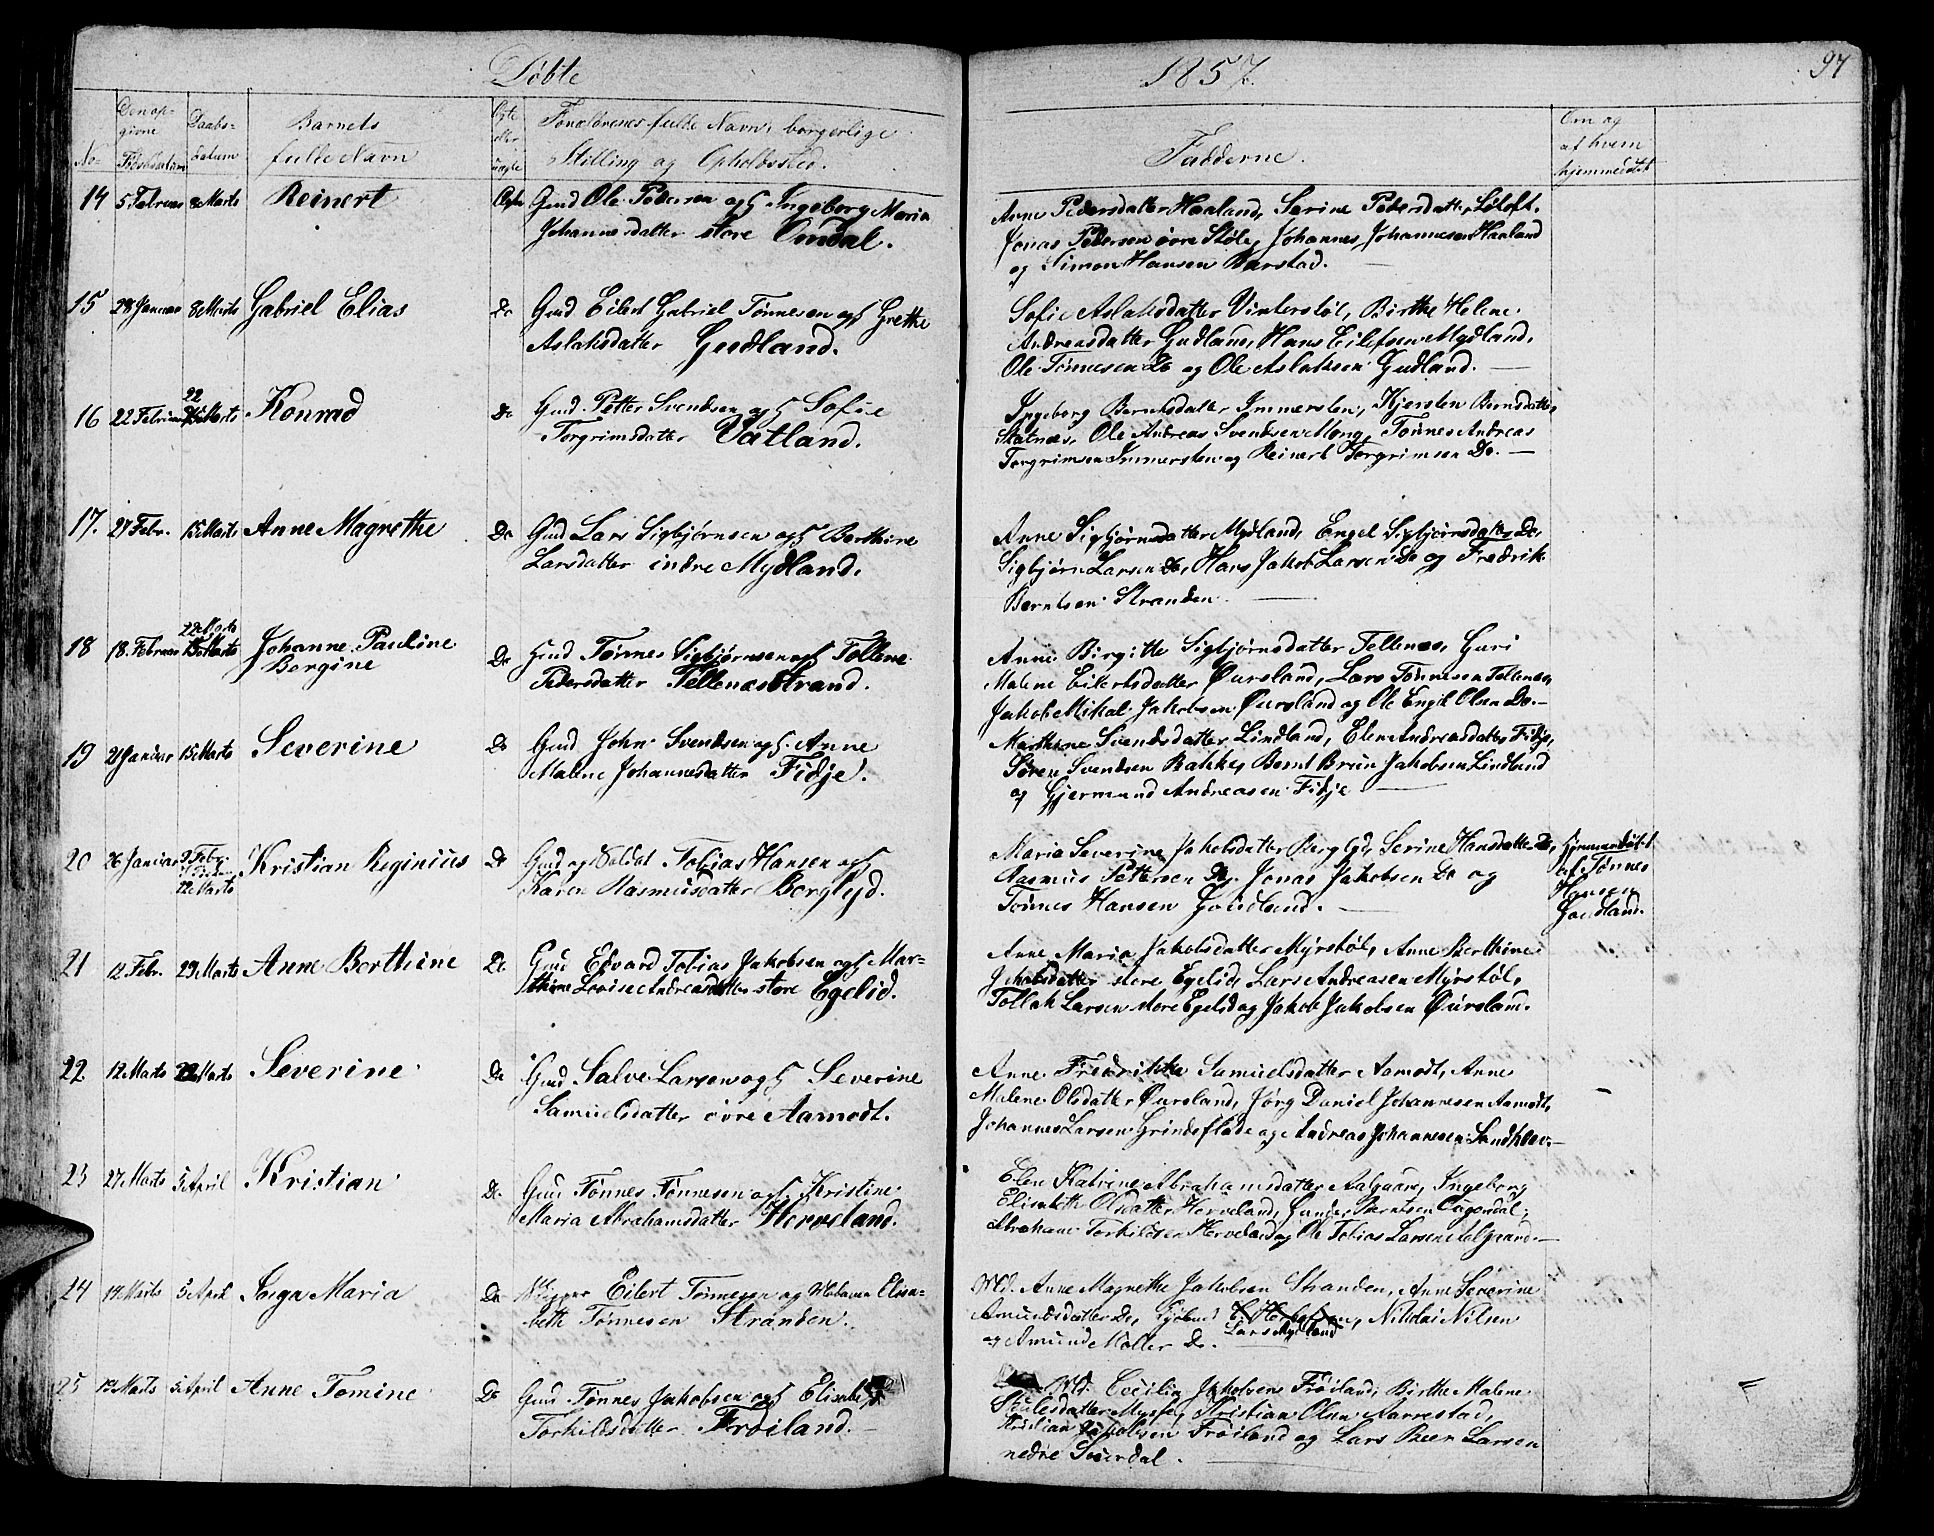 Døbte
1857.
97
No
Den op-
givne
Fødselsdatum
Daabs-
datum
Barnets
fulde Navn
Egte
eller
uegte
Forældrenes fulde Navn, borgerlige
Stilling og Opholdssted.
Fadderne.
Om og
af hvem
hjemmedøbt
14 5 Februar 8 Marts Reinert Egte Gmd Ole Pedersen og H Ingeborg Maria
Johannesdatter store Omdal.
Anne Pedersdatter Haaland, Serine Pedersdatter Løtoft.
Jonas Pedersen øvre Støle, Johannes Johannesen Haaland
og Simon Hansen Barstad.
15 28 Januar 8 Marts Gabriel Elias Do Gmd Eilert Gabriel Tønnesen og H Grethe
Aslaksdatter Gudland.
Sofie Aslaksdatter Vinterstøl, Birthe Helene
Andreasdatter Gudland, Hans Eilefsen Mydland,
Ole Tønnesen Do og Ole Aslaksen Gudland.
16 22 Februar 22 Marts Konrad Do Gmd Petter Svendsen og H Sofie
Torgrimsdatter Vatland.
Ingeborg Berntsdatter Immersten, Kjersten Berndsdatter
Skatnæs, Ole Andreas Svendsen Mong, Tønnes Andreas
Torgrimsen Immersten og Reinert Torgrimsen Do.
17. 27 Febr. 15 Marts Anne Magrethe Do Gmd Lars Sigbjørnsen og H Berthine
Larsdatter indre Mydland.
Anne Sigbjørnsdatter Mydland, Engel Sigbjørnsdatter Do,
Sigbjørn Larsen Do, Hans Jakob Larsen Do og Fredrik
Berntsen Stranden.
18 18. Februar 22 Marts Johanne Pauline
Bergine Do Gmd Tønnes Sigbjørnsen og H Tollene
Pedersdatter Tellenæsstrand.
Anne Birgitte Sigbjørnsdatter Tellenæs, Guri
Malene Eilertsdatter Øursland, Lars Tønnesen Tellenæs,
Jakob Mikal Jakobsen Øursland og Ole Engel Olsen Do.
19 21 Januar 15 Marts Severine Do Gmd John Svendsen og H Anne
Malene Johannesdatter Fidje.
Marthine Svendsdatter Lindland, Elen Andreasdatter Fidje,
Søren Svendsen Bakke, Bernt Bruun Jakobsen Lindland
og Gjermund Andreasen Fidje
20 26 Januar 9 Feb.
22 Marts Kristian Reginius Do Gmd og Soldat Tobias Hansen og H
Karen Rasmusdatter Berglyd.
Maria Severine Jakobsdatter Berglyd, Serine Hansdatter Do,
Rasmus Pettersen Do, Jonas Jakobsen Do og
Tønnes Hansen Goudland.
Hjemmedøbt
af Tønnes
Hansen
Goudland.
21 12 Febr. 29 Marts Anne Berthine Do Gmd Edvard Tobias Jakobsen og H Mar-
thine Lovise Andreasdatter store Egelid.
Anne Maria Jakobsdatter Myrstøl, Anne Berthine
Jakobsdatter store Egelid, Lars Andreasen Myrstøl,
Tollak Larsen store Egelid og Jakob Jakobsen Øursland.
22 12 Marts 22 Marts Severine Do Gmd Salve Larsen og H Severine
Samuelsdatter øvre Aamodt.
Anne Fredrikke Samuelsdatter Aamodt, Anne
Malene Olsdatter Øursland, Jørg Daniel Johannesen Aamodt,
Johannes Larsen Grindeflade og Andreas Johannesen
23 27 Marts 5 April Kristian Do Gmd Tønnes Tønnesen og H Kristine
Maria Abrahamsdatter Herveland.
Elen Katrine Abrahamsdatter Aalgaard, Ingeborg
Elisabeth Olsdatter Herveland, Gunder Berntsen
Abraham Torkildsen Herveland og Ole Tobias Larsen Aalgaard.
24 14 Marts 5 April Inga Maria Do Skipper Eilert Tønnesen og Madame Elisa-
beth Tønnesen Stranden.
Md. Anne Magrethe Jakobsen Stranden, Anne Severine
Amundsdatter Do, Lars Mydland, Nikolai Nilsen
og Amund Møller Do.
25 12 Marts 5 April Anne Tomine Do Gmd Tønnes Jakobsen og H Elisabeth
Torkildsdatter Frøiland.
Md. Cecilia Jakobsen Frøiland, Birthe Malene
Skulesdatter Mysse, Kristian Olsen Aarrestad,
Kristian Jakobsen Frøiland og Lars Beer Larsen
nedre Souerdal.